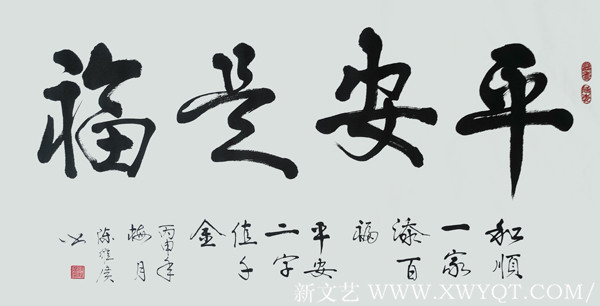 平安是福
和順
一家
添百
福
平安
二字
值千
金
丙申年
梅月
新文艺 WWW.XWYQT.COM/